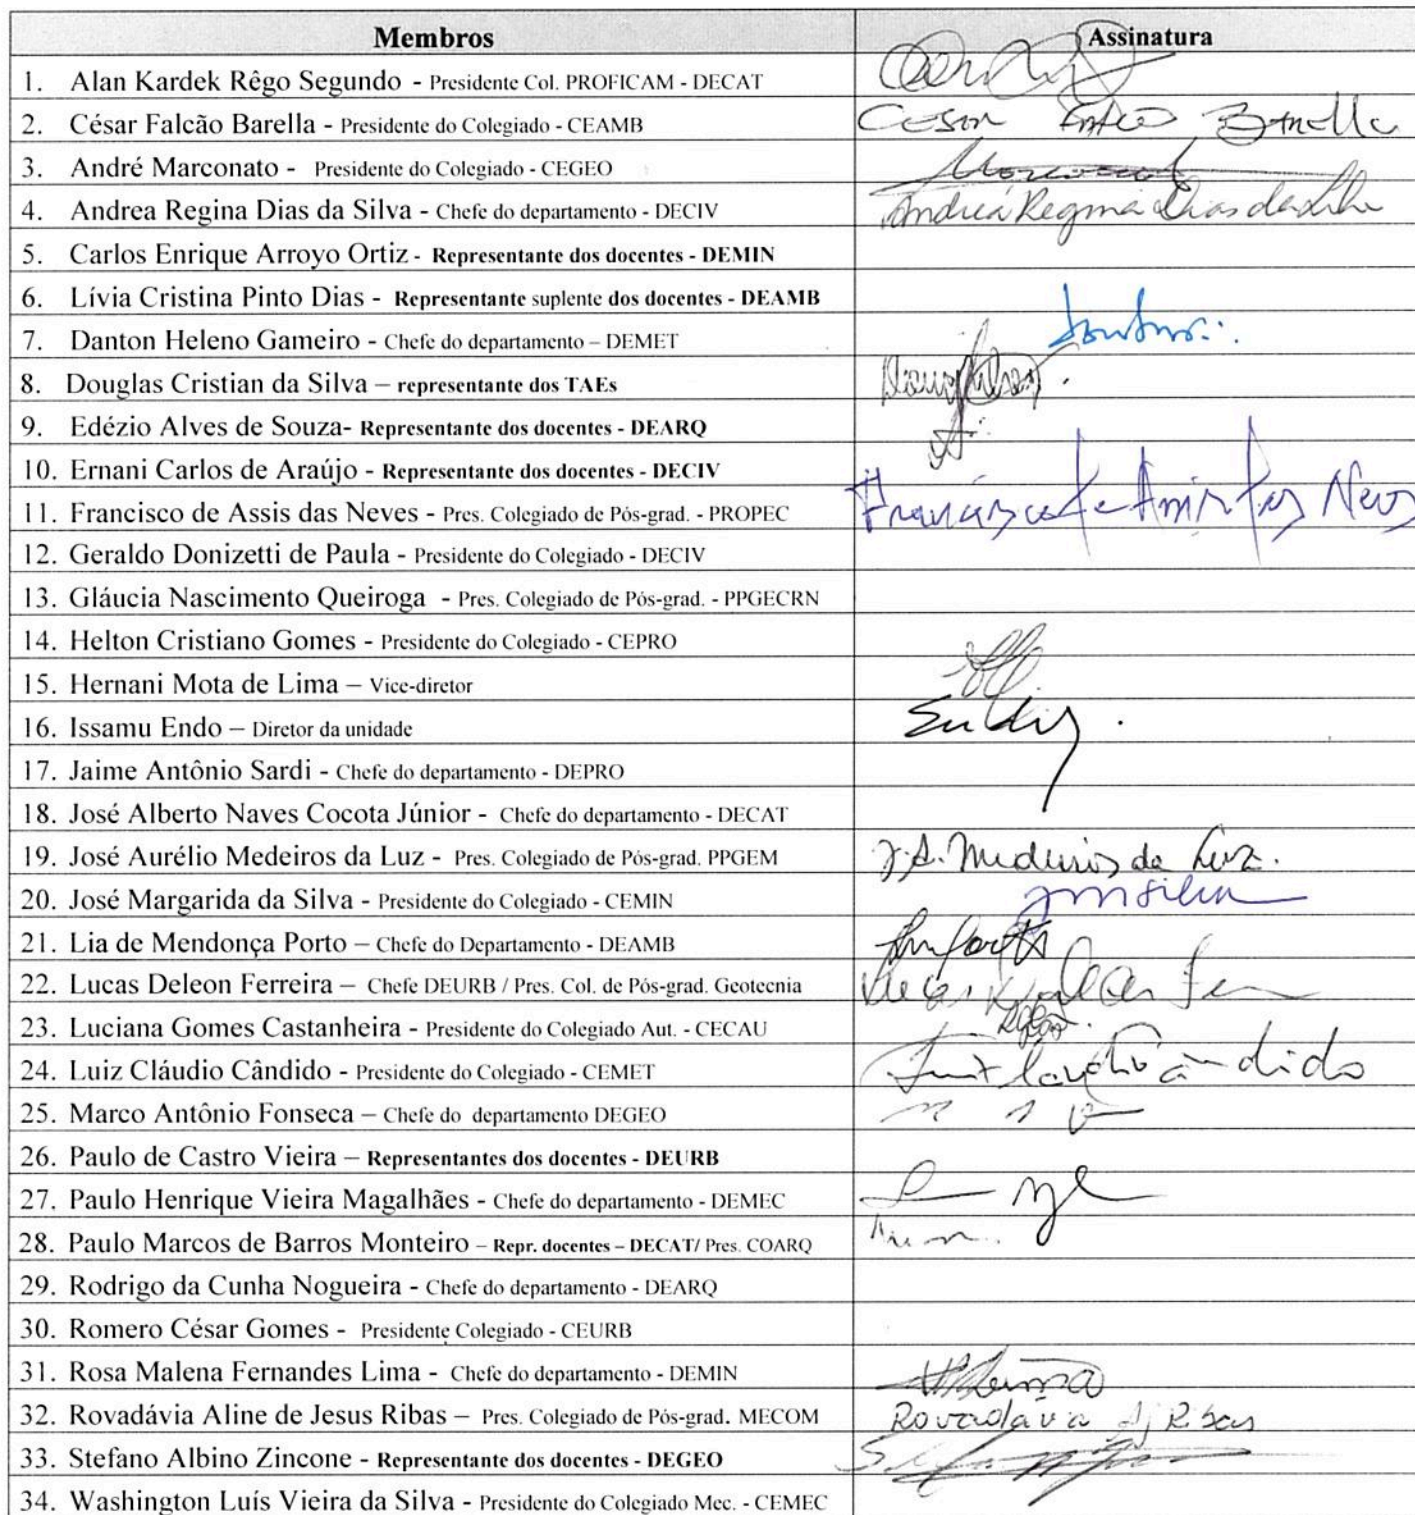 Membros Assinatura
1. Alan Kardek Rêgo Segundo - Presidente Col. PROFICAM - DECAT
2. César Falcão Barella - Presidente do Colegiado - CEAMB Cesar Falcão Barella
3. André Marconato - Presidente do Colegiado - CEGEO Marconato
4. Andrea Regina Dias da Silva - Chefe do departamento - DECIV Andréa Regina Dias da Silva
5. Carlos Enrique Arroyo Ortiz - Representante dos docentes - DEMIN
6. Lívia Cristina Pinto Dias - Representante suplente dos docentes - DEAMB
7. Danton Heleno Gameiro - Chefe do departamento – DEMET
8. Douglas Cristian da Silva – representante dos TAEs
9. Edézio Alves de Souza- Representante dos docentes - DEARQ
10. Ernani Carlos de Araújo - Representante dos docentes - DECIV
11. Francisco de Assis das Neves - Pres. Colegiado de Pós-grad. - PROPEC Francisco de Assis das Neves
12. Geraldo Donizetti de Paula - Presidente do Colegiado - DECIV
13. Gláucia Nascimento Queiroga - Pres. Colegiado de Pós-grad. - PPGECRN
14. Helton Cristiano Gomes - Presidente do Colegiado - CEPRO
15. Hernani Mota de Lima – Vice-diretor
16. Issamu Endo – Diretor da unidade
17. Jaime Antônio Sardi - Chefe do departamento - DEPRO
18. José Alberto Naves Cocota Júnior - Chefe do departamento - DECAT
19. José Aurélio Medeiros da Luz - Pres. Colegiado de Pós-grad. PPGEM J.A. Medeiros da Luz.
20. José Margarida da Silva - Presidente do Colegiado - CEMIN jmsilva
21. Lia de Mendonça Porto – Chefe do Departamento - DEAMB
22. Lucas Deleon Ferreira – Chefe DEURB / Pres. Col. de Pós-grad. Geotecnia
23. Luciana Gomes Castanheira - Presidente do Colegiado Aut. - CECAU
24. Luiz Cláudio Cândido - Presidente do Colegiado - CEMET Luiz Cláudio Cândido
25. Marco Antônio Fonseca – Chefe do departamento DEGEO
26. Paulo de Castro Vieira – Representantes dos docentes - DEURB
27. Paulo Henrique Vieira Magalhães - Chefe do departamento - DEMEC
28. Paulo Marcos de Barros Monteiro – Repr. docentes – DECAT/ Pres. COARQ
29. Rodrigo da Cunha Nogueira - Chefe do departamento - DEARQ
30. Romero César Gomes - Presidente Colegiado - CEURB
31. Rosa Malena Fernandes Lima - Chefe do departamento - DEMIN
32. Rovadávia Aline de Jesus Ribas – Pres. Colegiado de Pós-grad. MECOM Rovadávia A J Ribas
33. Stefano Albino Zincone - Representante dos docentes - DEGEO
34. Washington Luís Vieira da Silva - Presidente do Colegiado Mec. - CEMEC